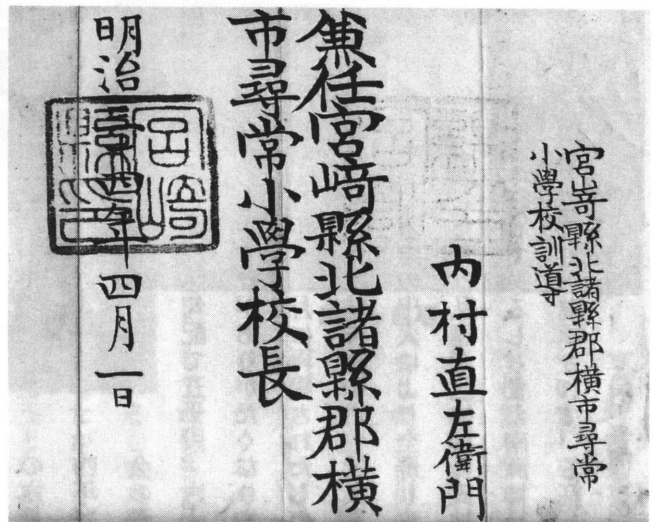 宮﨑縣北諸縣郡横市尋常
小學校訓導
内村直左衛門
兼任宮﨑縣北諸縣郡横
市尋常小學校長
明治 四年四月一日
宮﨑
縣印